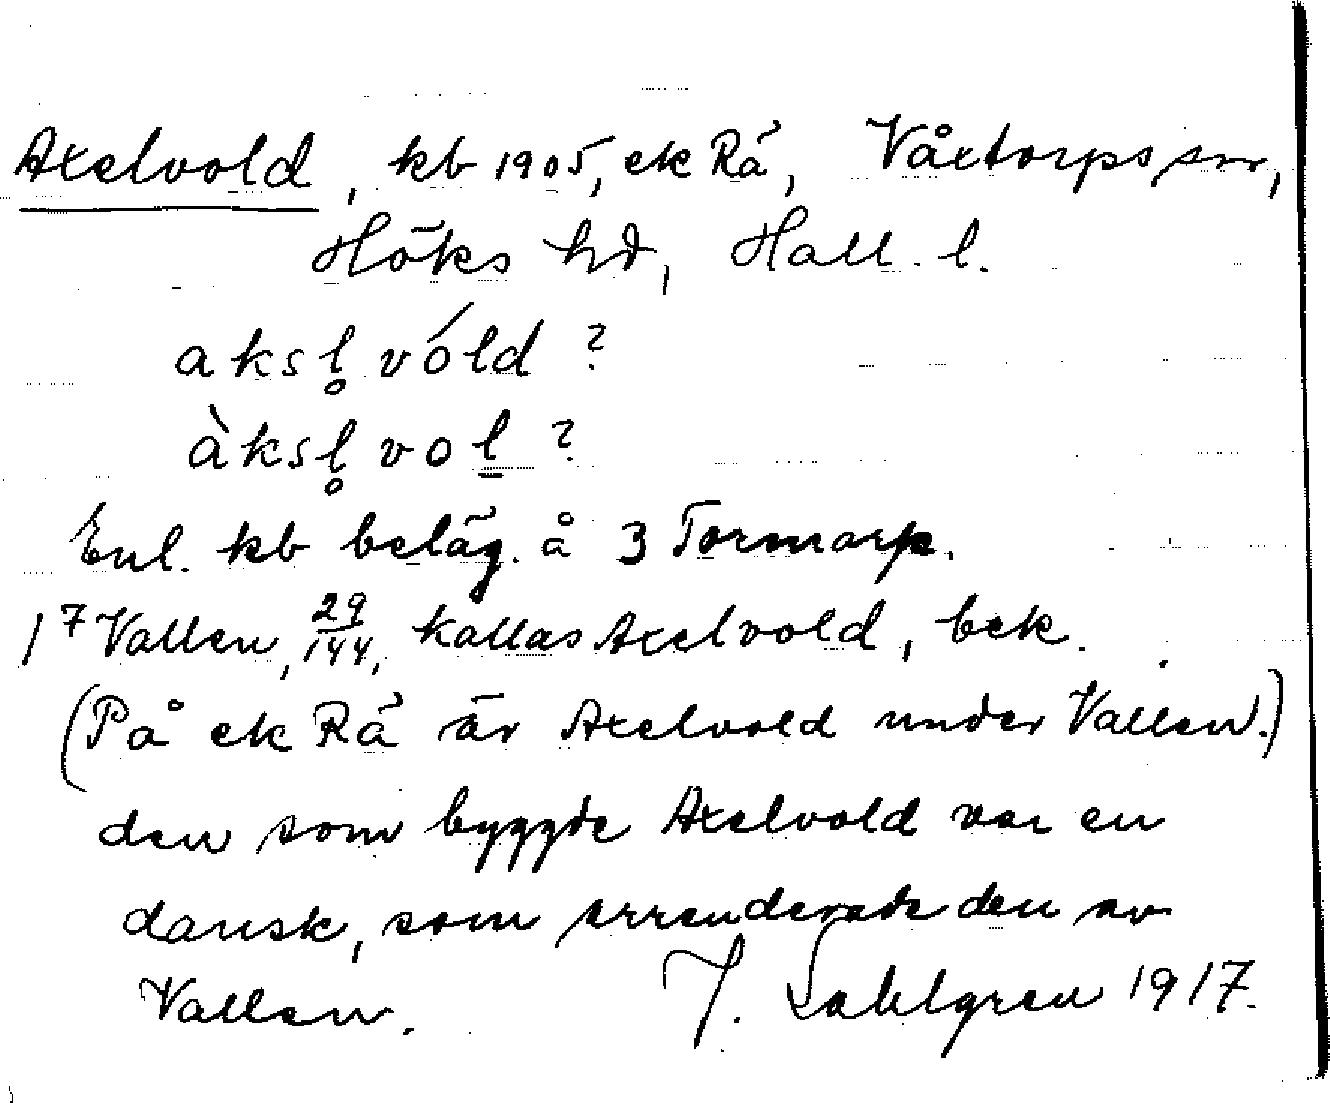 Axelvold, kb 1905, ek Rä, Våxtorps sn,
Höks hd, Hall. l.
aksl̥ vóld ?
àksl̥ vol̲ ?
Enl. kb beläg. å 3 Tormarp.
1⁷ Vallen, 29/144, kallas Axelvold, bek.
(På ek Rä är Axelvold under Vallen.)
den som byggde Axelvold var en
dansk, som arrenderade den av
Vallen. J. Sahlgren 1917.